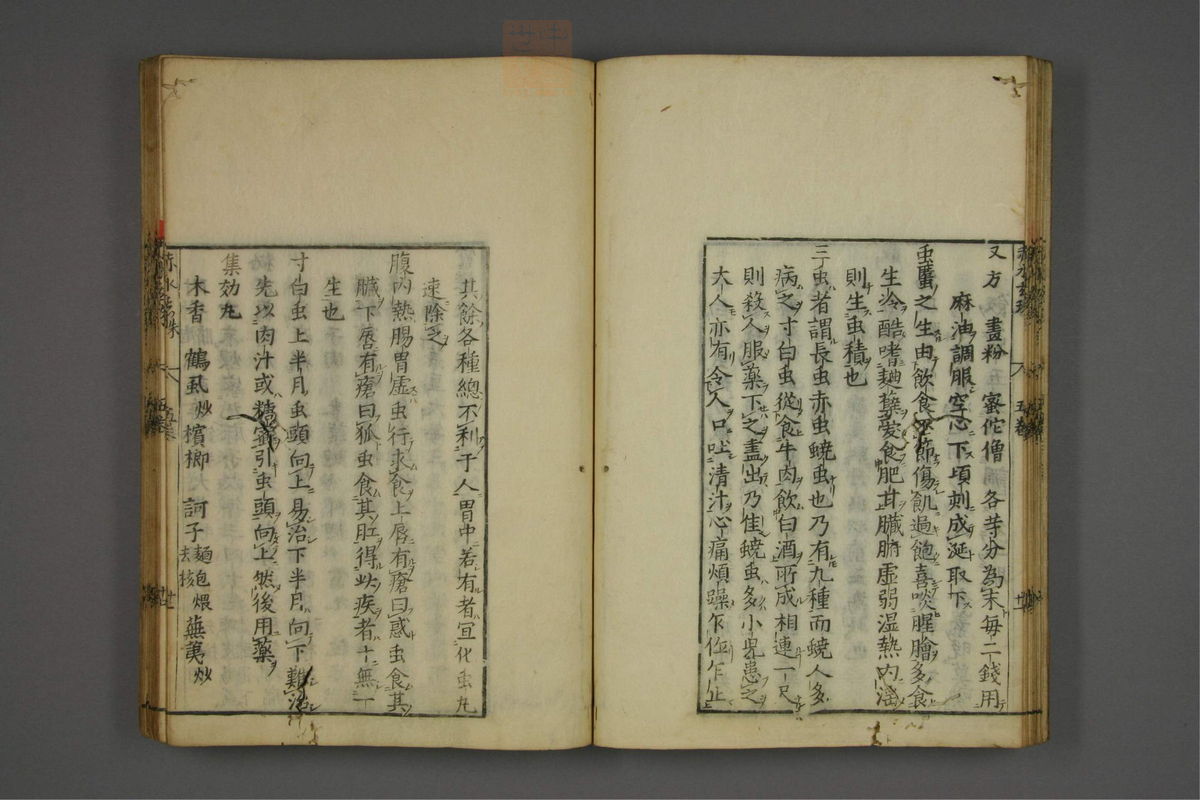 又方 畫粉 五 蜜佗僧 各等分為末每二錢用
麻油調服空心下頃刻成涎取下
䖝䘌之生由飲食不節傷飢過飽喜啖腥膾多食
生冷酷嗜麵蘖愛食肥甘臟腑虛弱湿熱内
則生虫積也
三虫者謂長虫赤虫蟯虫也乃有九種而蟯人多
病之寸白虫從食牛肉飲白酒所成相連一尺
則殺人服藥下之盡出乃佳蟯虫多小児患之
大人亦有令人口吐清汁心痛煩躁乍作乍止
其餘各種總不利于人胃中若有者宣化虫丸
速除之
腹内熱腸胃虛虫行求食上唇有瘡曰惑虫食其
臟下唇有瘡曰狐虫食其肛得此疾者十無一
生也
寸白虫上半月虫頭向上易治下半月向下難治
先以肉汁或糖蜜引虫頭向上然後用藥
集効丸
木香 鶴虱炒 檳榔 訶子麵包煨去核 蕪荑炒